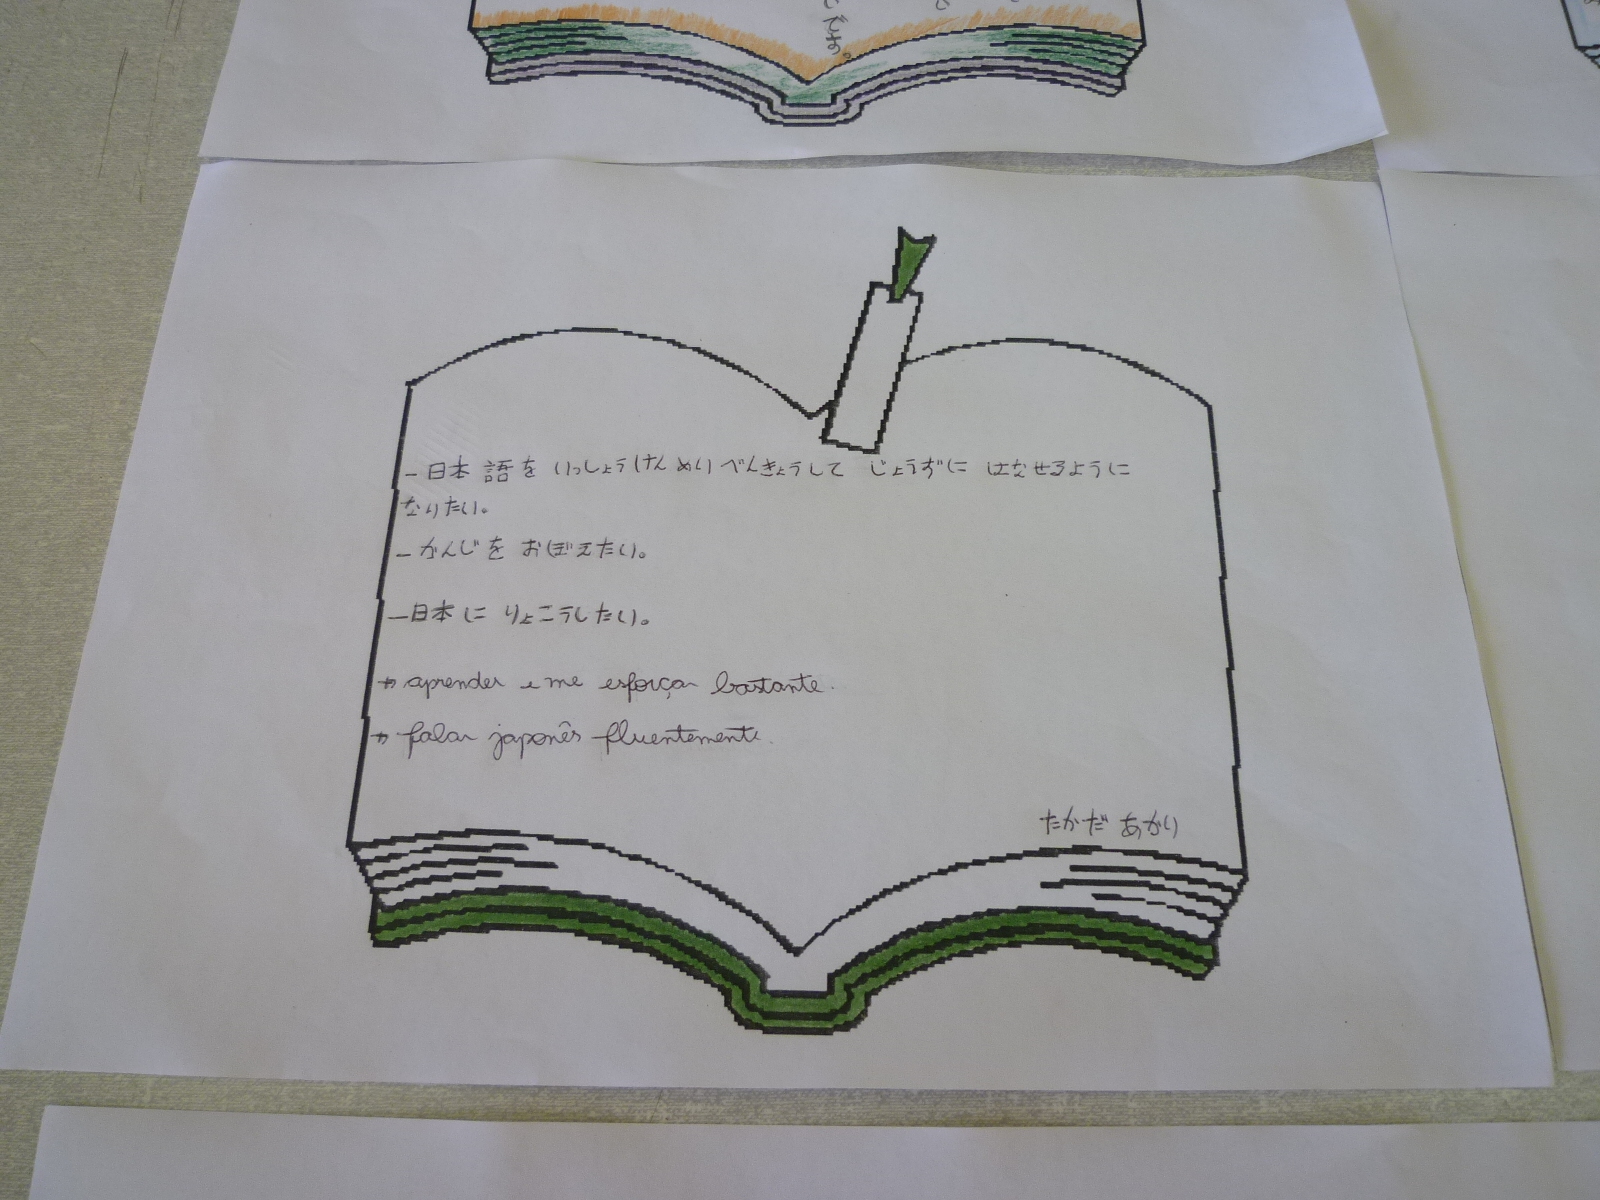 とです。
- 日本語を いっしょうけんめいべんきょうして じょうずに はなせるように
なりたい。
- かんじを おぼえたい。
- 日本に りょこうしたい。
→ aprender e me esforçar bastante.
→ falar japonês fluentemente.
たかだ あかり